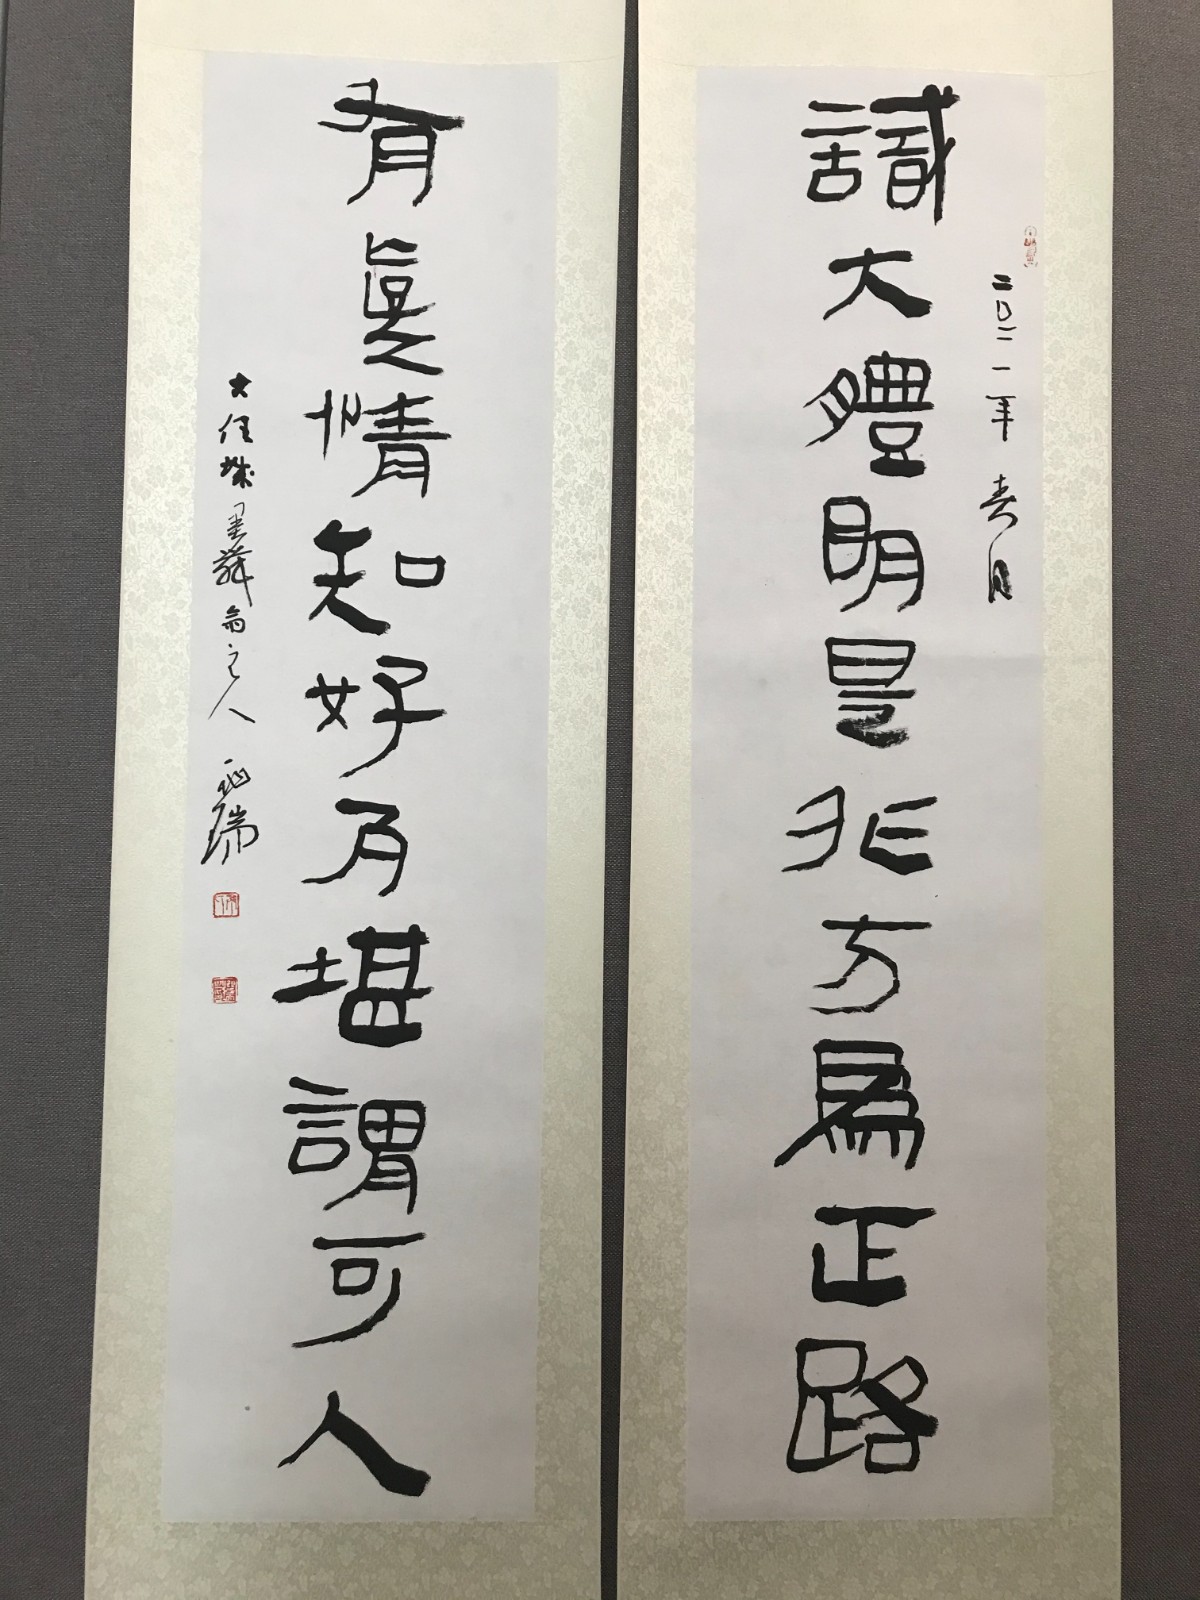 識大體明是非方為正路
二〇二一年春月
有眞情知好歹堪謂可人